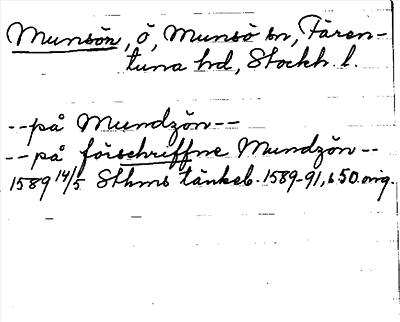 Munsön, ö, Munsö sn, Fären-
tuna hd, Stockh. l.
--på Mundzön--
--på förschriffne Mundzön--
1589 14/5 Sthms tänkeb. 1589-91, s 50. orig.